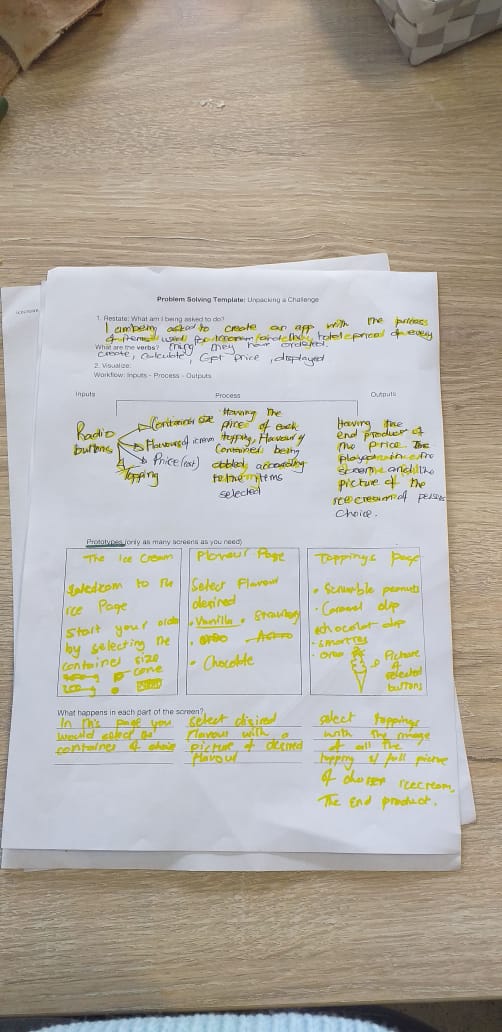 Problem Solving Template: Unpacking a Challenge
1. Restate: What am I being asked to do?
I am being asked to create an app with the
of items used for icecream and the total price of every
What are the verbs? thing they have ordered.
create, calculate, Get price, displayed
2. Visualize:
Workflow: Inputs - Process - Outputs
Inputs
Process
Outputs
Radio
buttons
Container size
Flavours of icream
Price (cost)
Topping
Having the
price of each
topping, Flavour &
Container being
added according
to the items
selected
Having the
end product of
the price. The
and the
picture of the
icecream of persons
choice.
Prototypes (only as many screens as you need)
The Ice Cream
to the
ice Page
Start your
by selecting the
container size
cone
Flavour Page
Select Flavour
desired
• Vanilla • Strawbery
• Chocolate
Toppings page
• Scrumble peanuts
• Caramel dip
chocolat dip
• smarties
• oreo
Picture
of
selected
buttons
What happens in each part of the screen?
In this page you
would select the
container of choice
select disired
Flavour with a
picture of desired
flavour
select toppings
with the image
of all the
topping & full picture
of chosen icecream.
The End product.